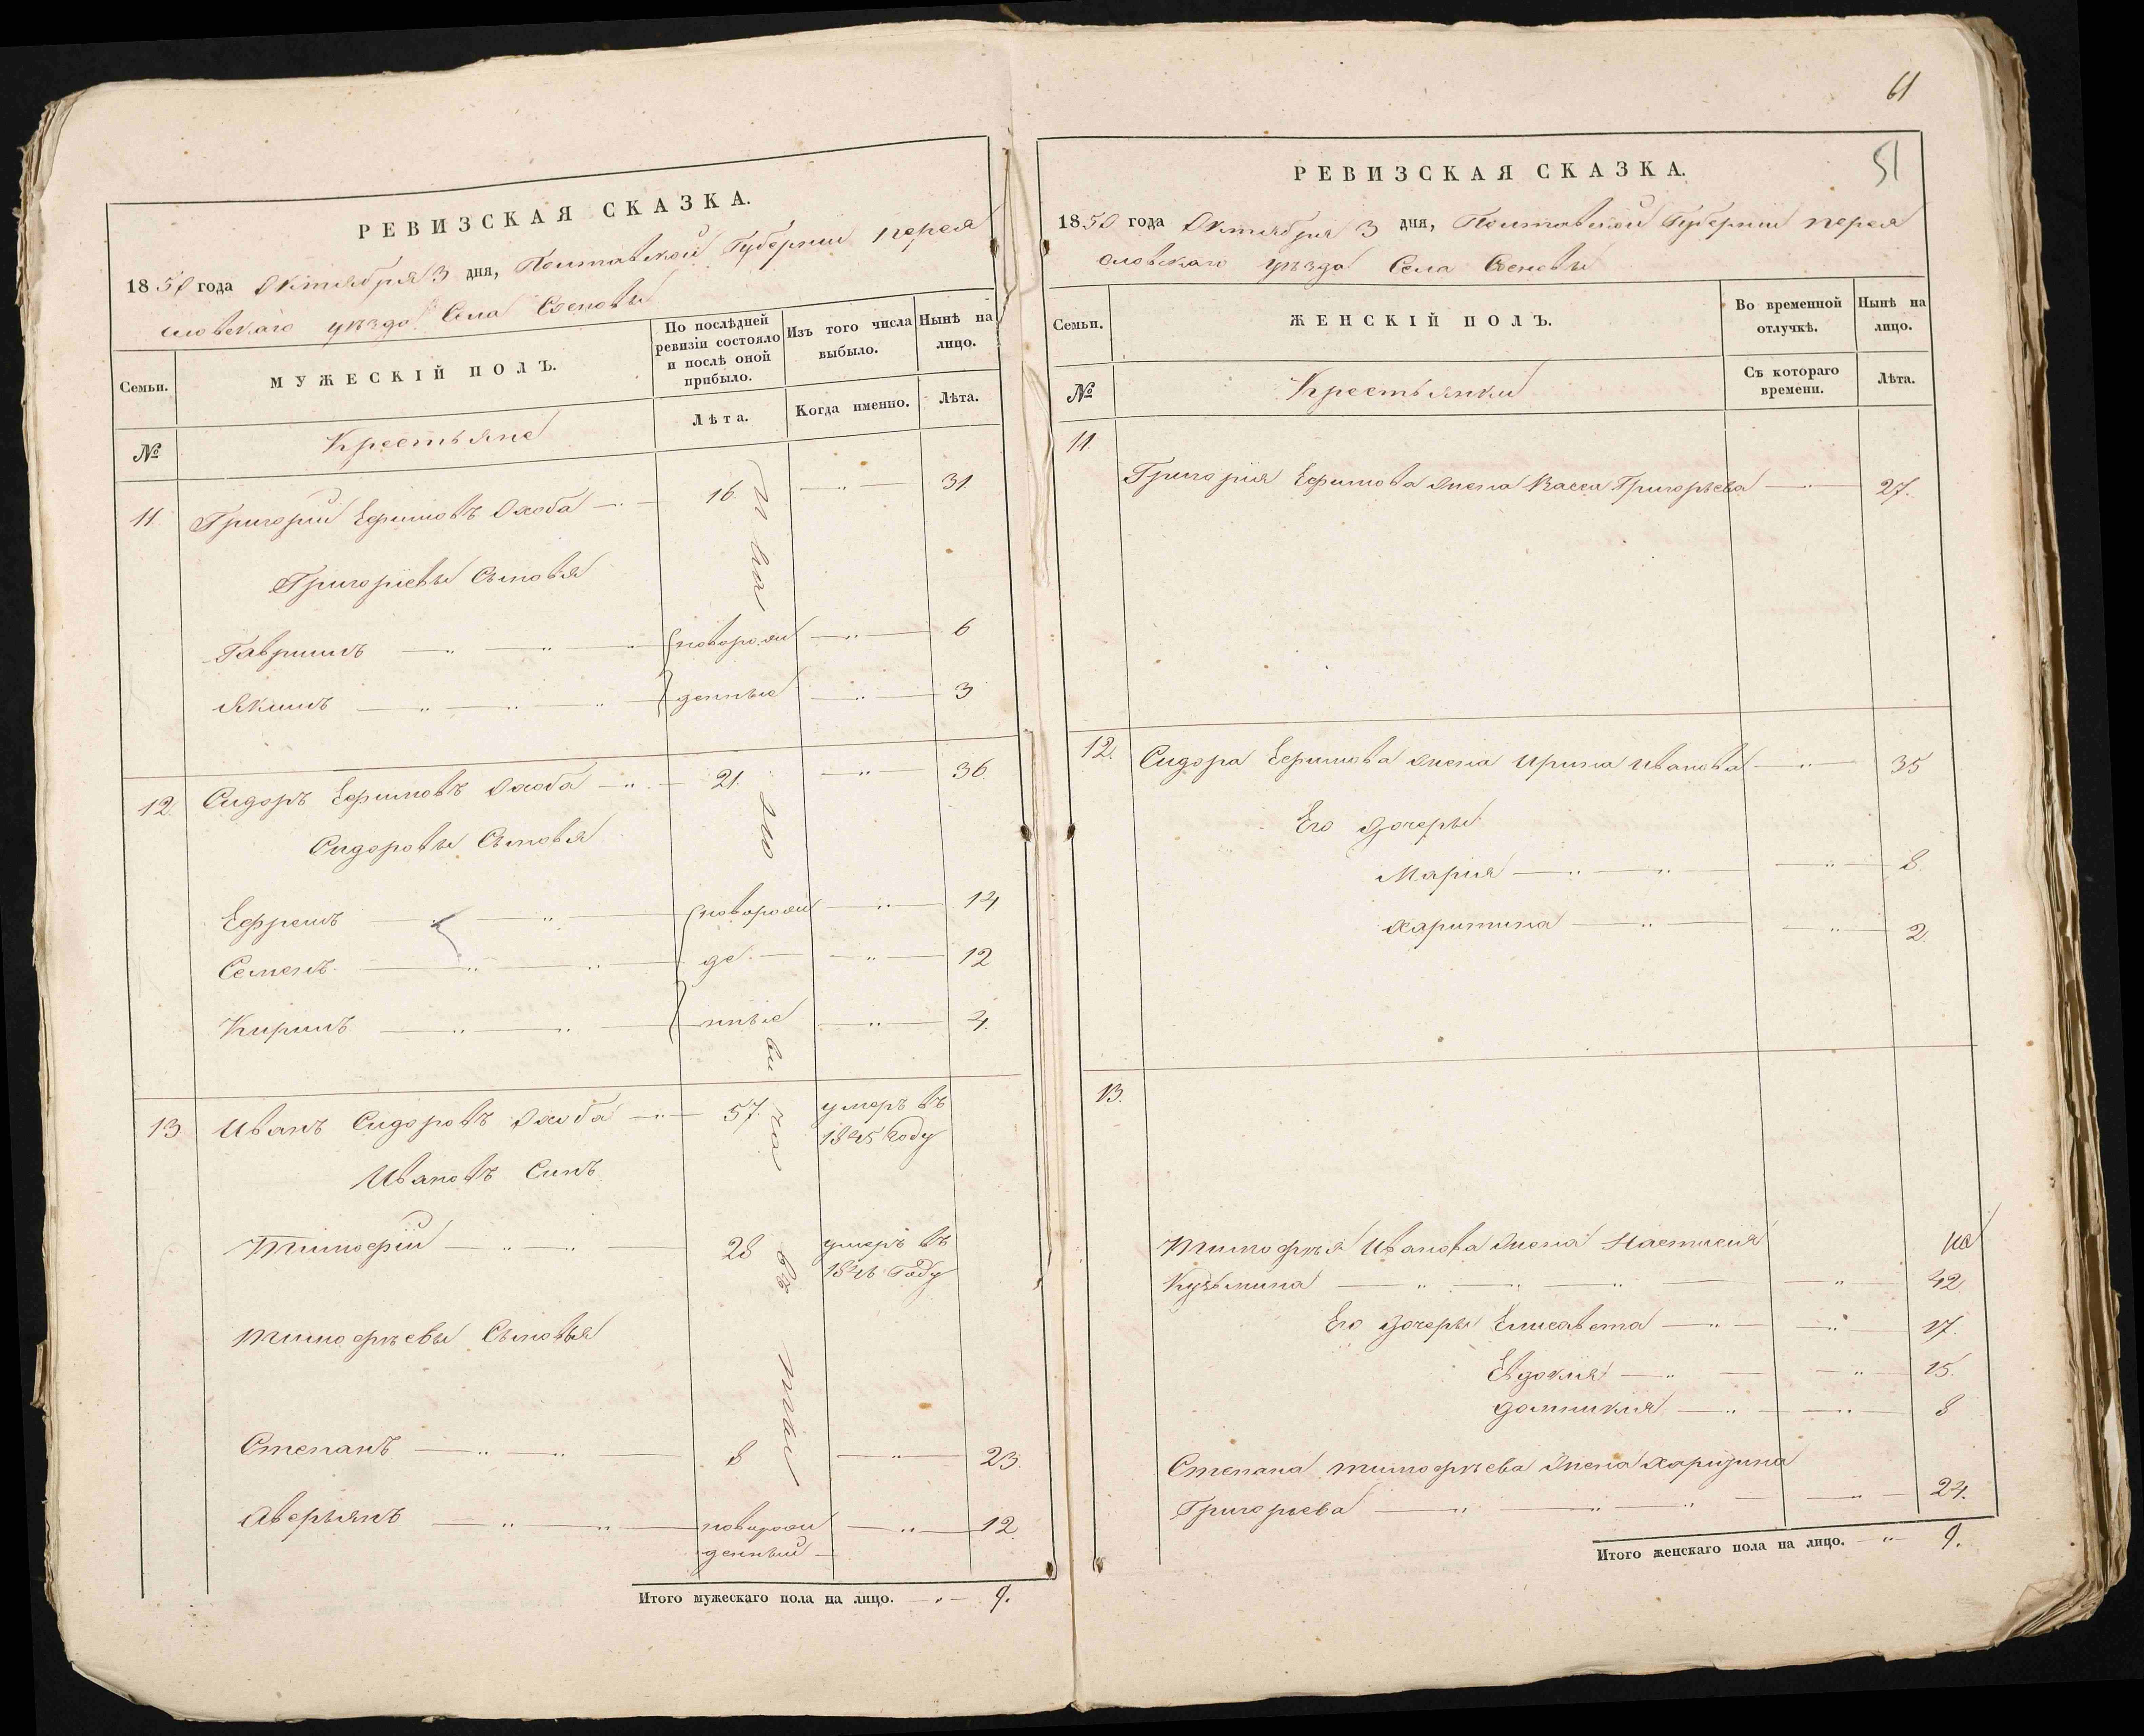 РЕВИЗСКАЯ СКАЗКА.
1850 года Октября 3 дня, Полтавской Губернии перея
словскаго уезда Села Сосновы
Семьи.
МУЖЕСКІЙ ПОЛЪ.
По послѣдней ревизіи состояло и послѣ оной прибыло.
Изъ того числа выбыло.
Нынѣ на лицо.
№
Крестьяне
Лѣта.
Когда именно.
Лѣта.
11. Григорій Ефимовъ Охоба 16. 31.
Григоріевы Сыновья
Гавриилъ новорож 6
Якимъ денные 3
12. Сидоръ Ефимовъ Охоба 21. 36.
Сидоровы Сыновья
Ефремъ новорож 14
Семенъ де 12
Кирилъ нные 4.
13 Иванъ Сидоровъ Охоба 57. умеръ въ
1845 году
Ивановъ Синъ
Тимофій 28 умеръ въ
1846 Году
Тимофѣевы Сыновья
Степанъ 8 23.
Аверьянъ новорож 12.
денный
Итого мужескаго пола на лицо. 9.
61
51
РЕВИЗСКАЯ СКАЗКА.
1850 года Октября 3 дня, Полтавской Губерніи перея
словскаго уѣзда Села Сосновы
Семьи.
ЖЕНСКІЙ ПОЛЪ.
Во временной отлучкѣ.
Нынѣ на лицо.
№
Крестьянки
Съ котораго времени.
Лѣта.
11.
Григорія Ефимова жена Васса Григорьева 27.
12. Сидора Ефимова жена Ирина Иванова 35
Его дочеры
Марія 8
Харитина 2.
13.
Тимофѣя Иванова жена Настасія
Кузьмина 42
Его дочеры Елисавета 17.
Евдокия 15.
Домникия 8
Степана Тимофѣева жена
Григорьева 24.
Итого женскаго пола на лицо. 9.